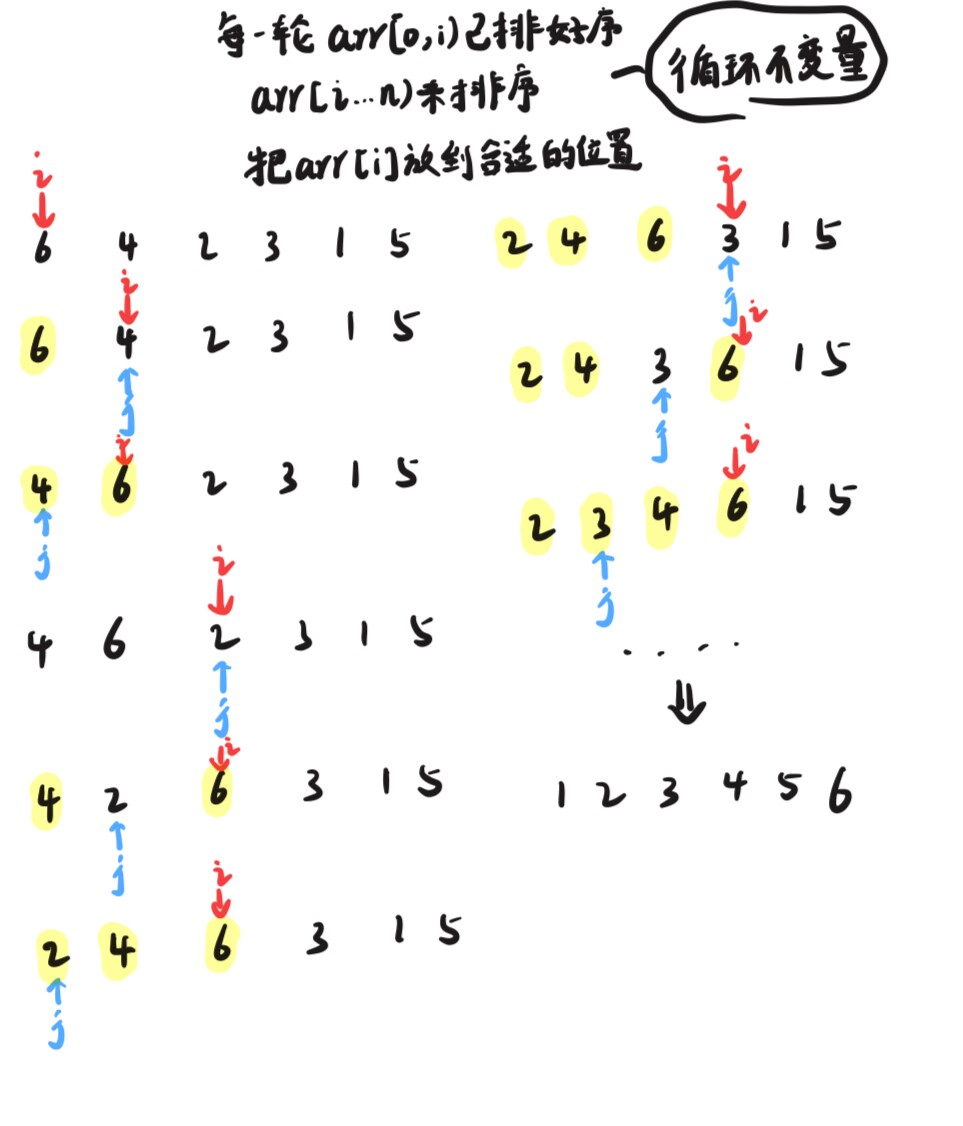 每一轮 arr[0,i)已排好序
arr[i...n)未排序
循环不变量
把arr[i]放到合适的位置
i
6 4 2 3 1 5
i
6 4 2 3 1 5
j
i
4 6 2 3 1 5
j
i
4 6 2 3 1 5
j
i
4 2 6 3 1 5
j
i
2 4 6 3 1 5
j
i
2 4 6 3 1 5
j
i
2 4 3 6 1 5
j
i
2 3 4 6 1 5
j
. . . .
⇓
1 2 3 4 5 6